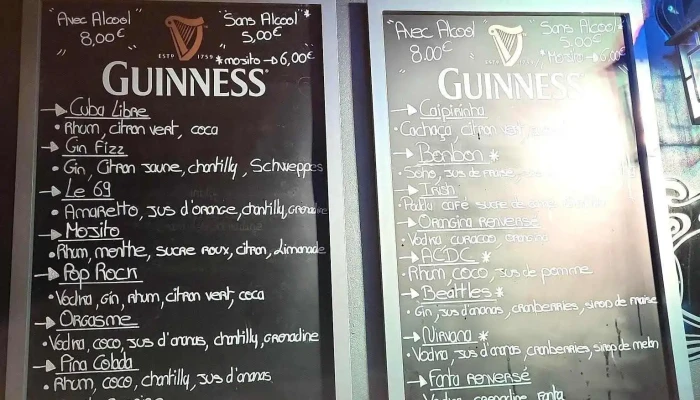 "Avec Alcool"
8,00€
"Sans Alcool"*
5,00€
*mosito → 6,00€
ESTD 1759
GUINNESS
→ Cuba Libre
• Rhum, citron vert, coca
→ Gin Fizz
• Gin, Citron jaune, chantilly, Schweppes
→ Le 69
• Amaretto, jus d'orange, chantilly, grenadine
→ Mojito
• Rhum, menthe, sucre roux, citron, limonade
→ Pop Rock
• Vodka, gin, rhum, citron vert, coca
→ Orgasme
• Vodka, coco, jus d'ananas, chantilly, grenadine
→ Pina Colada
• Rhum, coco, chantilly, jus d'ananas
"Avec Alcool
8.00€
"Sans Alcool"*
5,00€
ESTD 1759
GUINNESS
→ Caipirinha
• Cachaça, citron vert,
→ Bonbon *
• Soho, jus de fraise
→ Irish
café sucre
→ Orangina renversé
• Vodka curacao, orangina
→ ACDC *
• Rhum, coco, jus de pomme
→ Beattles *
• Gin, jus d'ananas, cranberries, sirop de fraise
→ Nirvana *
• Vodka, jus d'ananas, cranberries, sirop de melon
→ Fanta renversé
Vodka, grenadine, Fanta